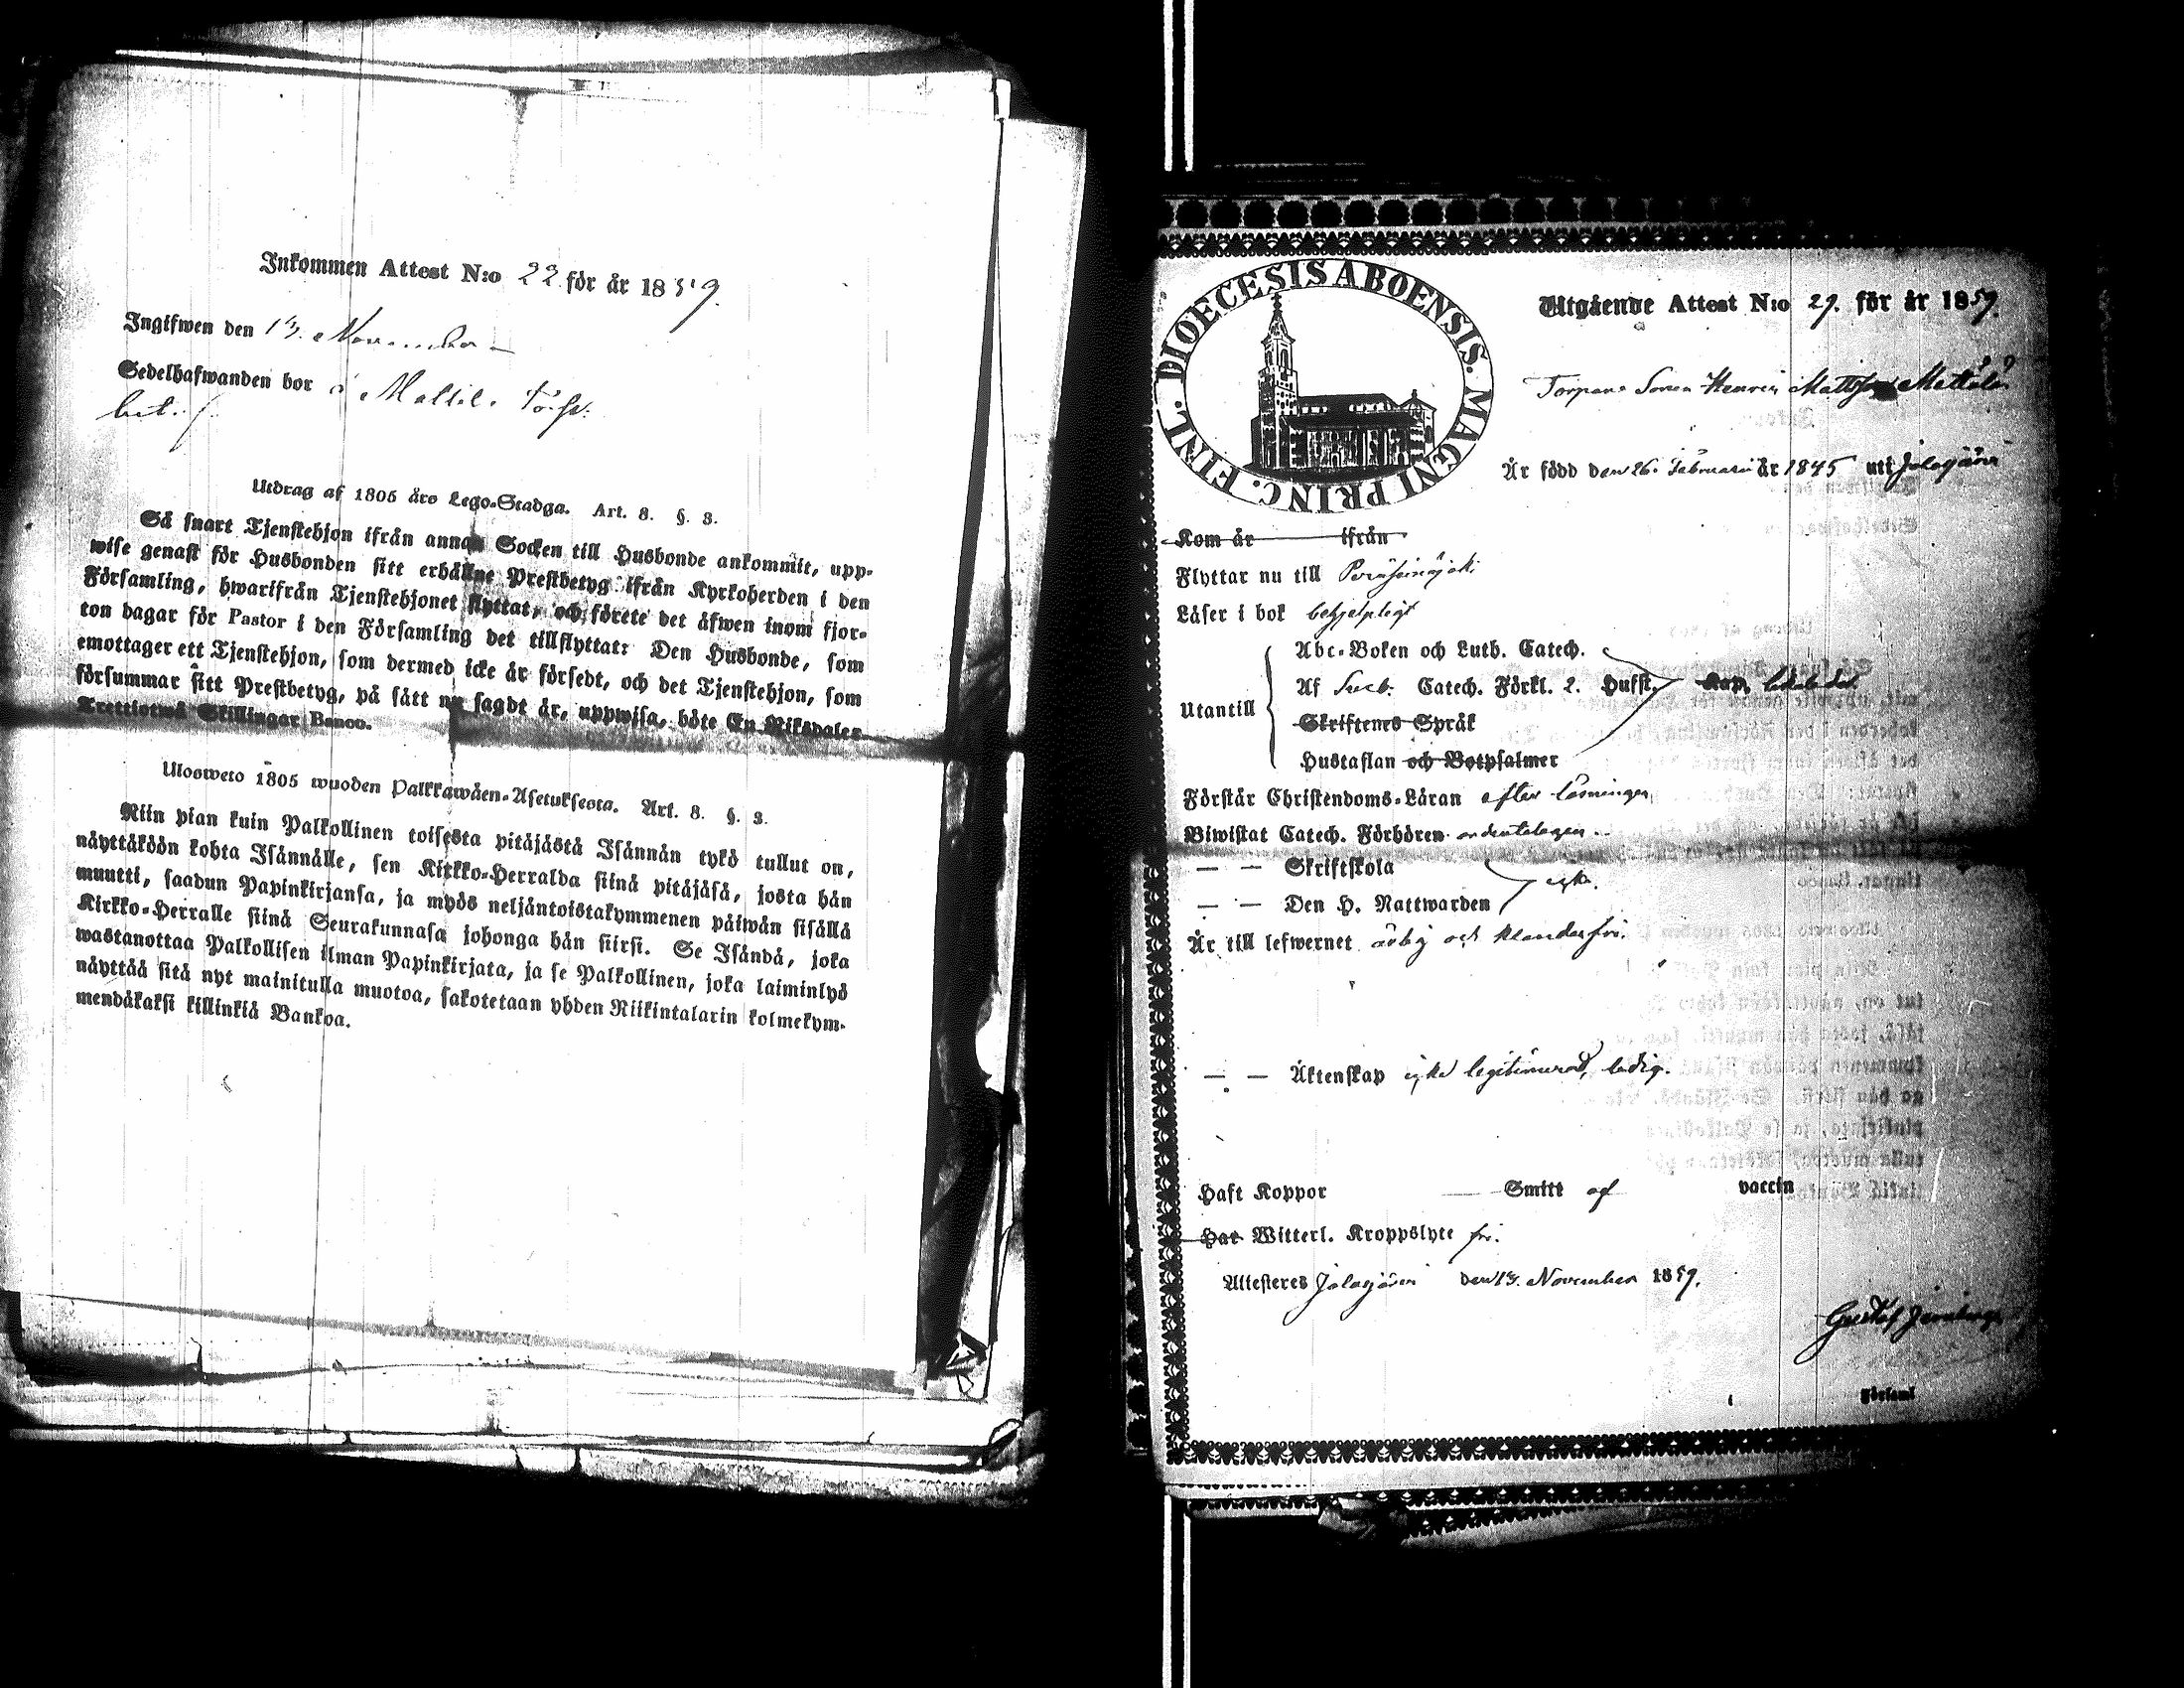 Inkommen Attest N:o 22 för år 1859.
Ingifwen den 13. November
Sedelhafwanden bor å
Utdrag af 1805 års Lego-Stadga. Art. 8. §. 3.
Så snart Tjenstehjon ifrån annan Socken till Husbonde ankommit, upp-
wise genast för Husbonden sitt erhållne Prestbetyg ifrån Kyrkoherden i den
Församling, hwarifrån Tjenstehjonet flyttat, och förete det äfwen inom fjor-
ton dagar för Pastor i den Församling det tillflyttat: Den Husbonde, som
emottager ett Tjenstehjon, som dermed icke är försedt, och det Tjenstehjon, som
försummar sitt Prestbetyg, på sätt nu sagdt är, uppwisa, böte En Riksdaler
Trettiotwå Skillingar Banco.
Ulosweto 1805 wuoden Palkkawäen-Asetuksesta. Art. 8. §. 3.
Niin pian kuin Palkollinen toisesta pitäjästä Isännän tykö tullut on,
näyttäköön kohta Isännälle, sen Kirkko-Herralda siinä pitäjäsä, josta hän
muutti, saadun Papinkirjansa, ja myös neljäntoistakymmenen päiwän sisällä
Kirkko-Herralle siinä Seurakunnasa johonga hän siirsi. Se Isändä, joka
wastanottaa Palkollisen ilman Papinkirjata, ja se Palkollinen, joka laiminlyö
näyttää sitä nyt mainitulla muotoa, sakotetaan yhden Riikintalarin kolmekym-
mendäkaksi killinkiä Bankoa.
FINL. DIOECESIS ABOENSIS. MAGNI PRINC.
Utgående Attest N:o 29. för år 1859.
Torpare Sonen Henrik Mattsson
Är född den 26. Februari år 1845 uti Jalasjärvi
Kom år ifrån
Flyttar nu till Peräseinäjoki
Läser i bok behjelpligt
Abc-Boken och Luth. Catech.
Af Sveb. Catech. Förkl. 2. Hufst. Kap.
Utantill
Skriftenes Språk
Hustaflan och Botpsalmer
Förstår Christendoms-Läran efter läsningen
Biwistat Catech. Förhören ordenteligen.
— — Skriftskola
— — Den H. Nattwarden icke.
Är till lefwernet ärlig och klanderfri.
— — Äktenskap icke legitimerad, ledig.
Haft Koppor — Smitt af vaccin
Har Witterl. Kroppslyte fri.
Attesteres Jalasjärvi den 13. November 1859.
Gustaf
Församl